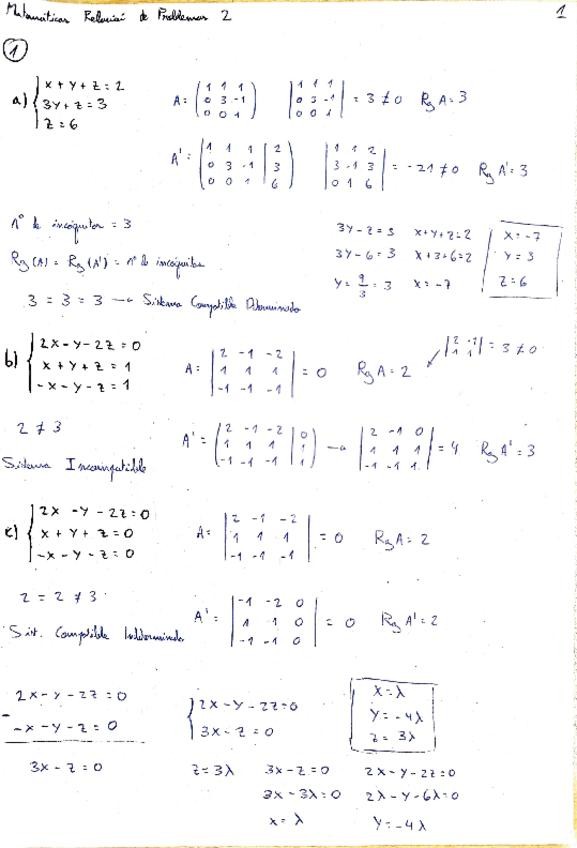 Matemáticas Relación de Problemas 2 1
1
a) { x + y + z = 2
3y + z = 3
z = 6
A = ( 1 1 1
0 3 -1
0 0 1 )
| 1 1 1
0 3 -1
0 0 1 | = 3 ≠ 0 Rg A = 3
A' = ( 1 1 1 | 2
0 3 -1 | 3
0 0 1 | 6 )
| 1 1 2
3 -1 3
0 1 6 | = -21 ≠ 0 Rg A' = 3
nº de incógnitas = 3
Rg(A) = Rg(A') = nº de incógnitas
3 = 3 = 3 → Sistema Compatible Determinado
3y - z = 3 x + y + z = 2
3y - 6 = 3 x + 3 + 6 = 2
y = 9/3 = 3 x = -7
x = -7
y = 3
z = 6
b) { 2x - y - 2z = 0
x + y + z = 1
-x - y - z = 1
A = | 2 -1 -2
1 1 1
-1 -1 -1 | = 0 Rg A = 2
| 2 -1
1 1 | = 3 ≠ 0
2 ≠ 3
Sistema Incompatible
A' = ( 2 -1 -2 | 0
1 1 1 | 1
-1 -1 -1 | 1 ) → | 2 -1 0
1 1 1
-1 -1 1 | = 4 Rg A' = 3
c) { 2x - y - 2z = 0
x + y + z = 0
-x - y - z = 0
A = | 2 -1 -2
1 1 1
-1 -1 -1 | = 0 Rg A = 2
2 = 2 ≠ 3
Sist. Compatible Indeterminado
A' = | -1 -2 0
1 1 0
-1 -1 0 | = 0 Rg A' = 2
2x - y - 2z = 0
- -x - y - z = 0
3x - z = 0
{ 2x - y - 2z = 0
3x - z = 0
x = λ
y = -4λ
z = 3λ
z = 3λ 3x - z = 0 2x - y - 2z = 0
3x - 3λ = 0 2λ - y - 6λ = 0
x = λ y = -4λ